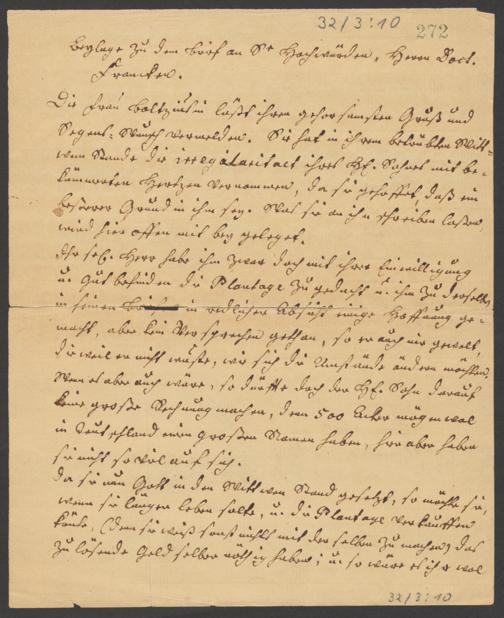 32/3:10
272
Beylage zu dem brief an Sr Hochwürden, Herrn Doct.
Francken.
Die Frau Boltziusin läßt ihren gehorsamsten Gruß und
Segens-Wunsch vermelden. Sie hat in ihrem betrübten Witt-
wen Stande die irregularitaet ihres Hl. Sohnes mit be-
kümmerten Hertzen vernommen, da sie gehoffet, daß ein
besserer Grund in ihm sey. Was sie an ihn schreiben lassen,
wird hier offen mit bey geleget.
Ihr sel. Herr habe ihm zwar doch mit ihrer Einwilligung
u. Gutbefinden die Plantage zugedacht u. ihm zu derselben
in seinen in redlicher Absicht einige Hoffnung ge-
macht, aber kein Versprechen gethan, so er auch nie gewolt,
dieweil er nicht wuste, wie sich die Umstände ändern möchten,
Wenn es aber auch wäre, so dürfte doch der Hl. Sohn darauf
keine grosse Rechnung machen, denn 500 Acker mögen wol
in Teutschland einen grossen Namen haben, hier aber haben
sie nicht so viel auf sich.
Da sie nun Gott in den Wittwen Stand gesetzt, so möchte sie,
wenn sie länger leben solte, u. die Plantage verkauffen
könte, (denn sie weiß sonst nichts mit derselben zu machen) das
zu lösende Geld selber nöthig haben; u. so wäre es ihr wol
32/3:10